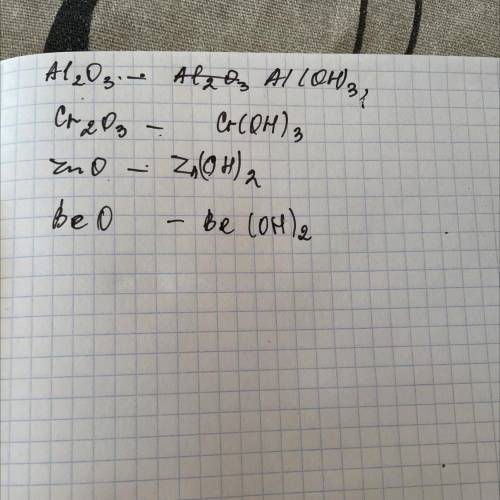 Al₂O₃ - Al₂O₃ Al(OH)₃,
Cr₂O₃ - Cr(OH)₃
ZnO - Zn(OH)₂
BeO - Be(OH)₂